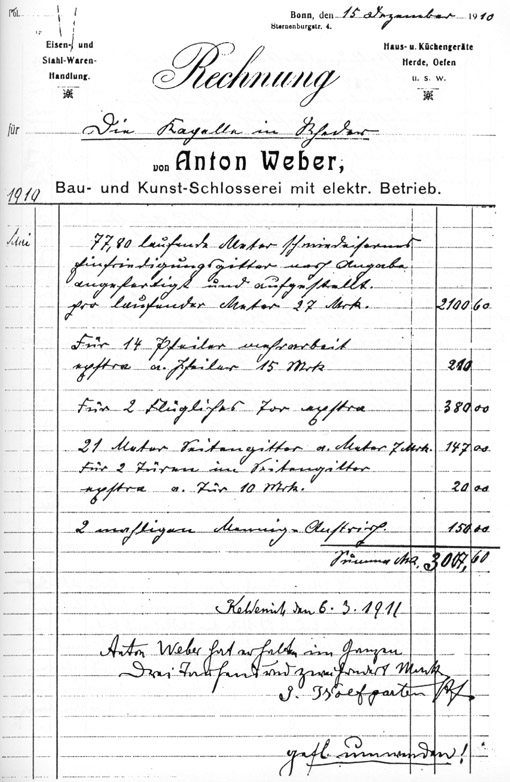 Bonn, den 15 Dezember 1910
Sternenburgstr. 4.
Eisen- und
Stahl-Waren-
Handlung.
Haus- u. Küchengeräte
Herde, Oefen
u. s. w.
Rechnung
für Die Kapelle in Rheder
von Anton Weber,
Bau- und Kunst-Schlosserei mit elektr. Betrieb.
1910
Juni 77,80 laufende Meter schmiedeisernes
Einfriedigungsgitter nach Angabe
angefertigt und aufgestellt.
pro laufender Meter 27 Mrk. 2100 60
Für 14 Pfeiler mehrarbeit
exstra a. Pfeiler 15 Mrk 210
Für 2 Flügliches Tor exstra 380 00
21 Meter Seitengitter a. Meter 7 Mrk. 147 00
Für 2 Türen im Seitengitter
exstra a. Tür 10 Mrk. 20 00
2 mahligen Mennig-Anstrich. 150 00
Summa Mk. 3007,60
Keldenich den 6.3.1911
Anton Weber hat erhalten im Ganzen
Drei Tausend und zweihundert Mark
J. Wolfgarten
gefl. umwenden!